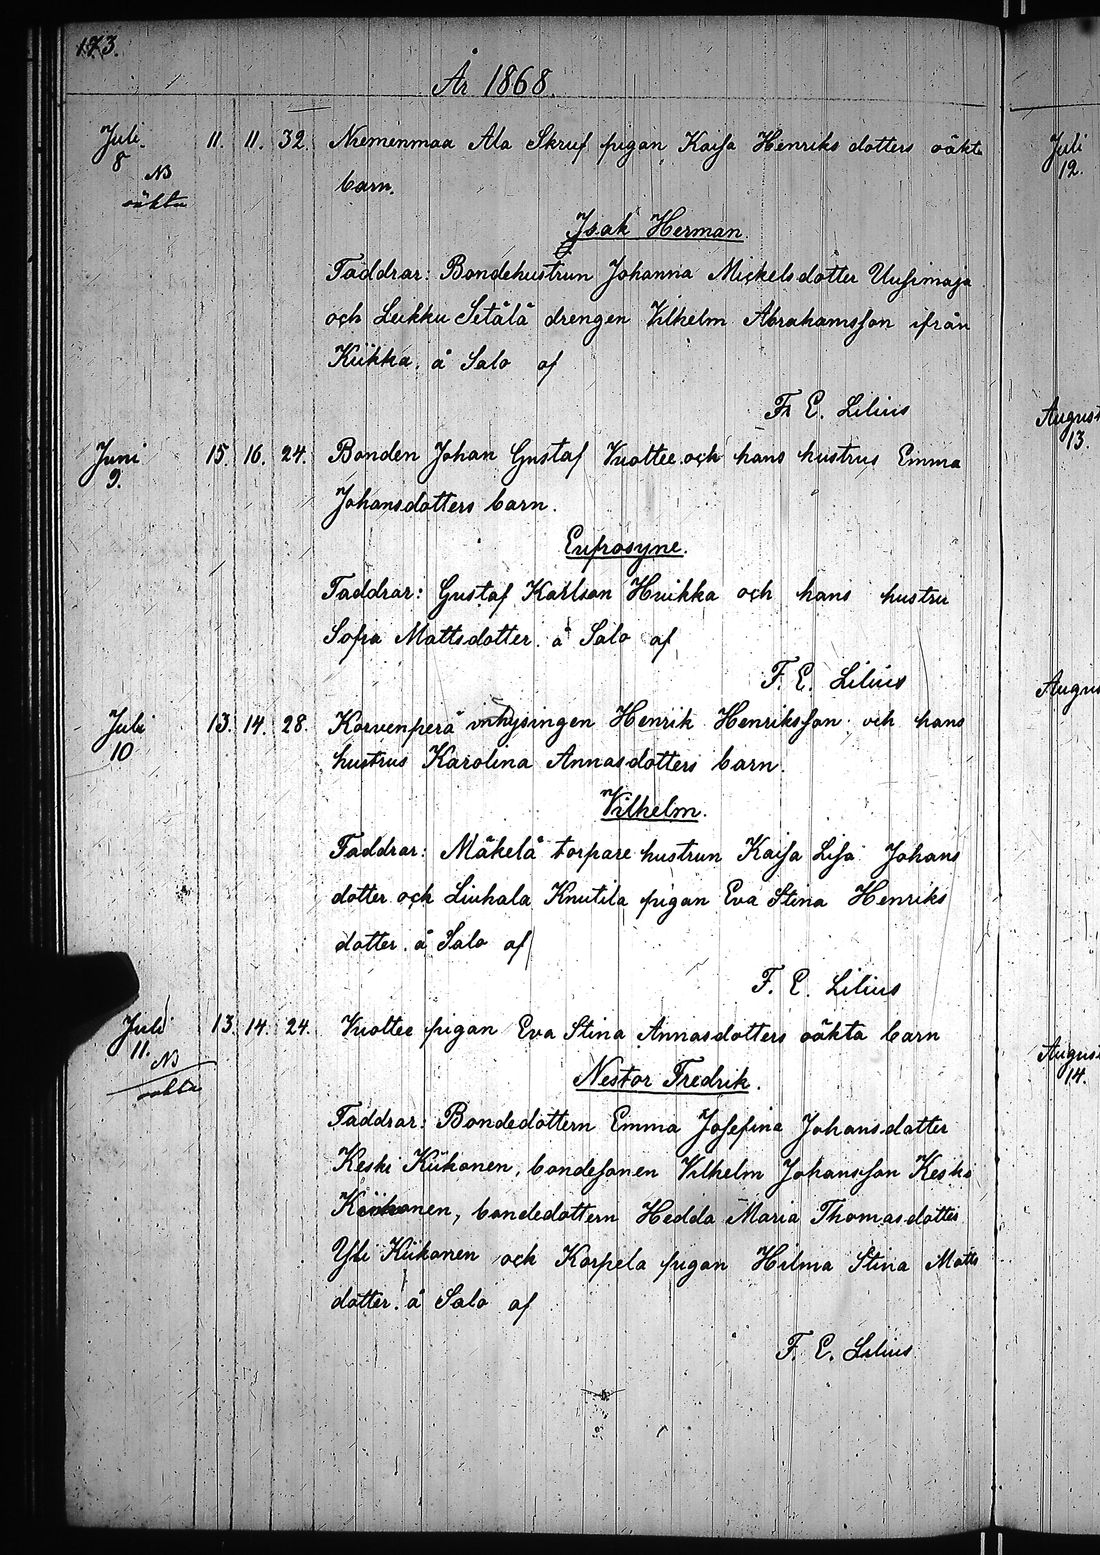 173.
År 1868.
Juli 11. 11. 32. Niemenmaa Ala Skruf pigan Kaisa Henriks dotters oäkta
8 NB barn.
oäkta
Isak Herman.
Faddrar: Bondehustrun Johanna Mickelsdotter Uusimaja
och Leikku Setälä drengen Vilhelm Abrahamsson ifrån
Kiikka. å Salo af
Fr E. Lilius
Juni 15. 16. 24. Bonden Johan Gustaf Vuottee och hans hustrus Emma
9. Johansdotters barn.
Eufrosyne.
Faddrar: Gustaf Karlson Huikka och hans hustru
Sofia Mattsdotter. å Salo af
F. E. Lilius
Juli 13. 14. 28. Korvenperä inhysingen Henrik Henriksson och hans
10 hustrus Karolina Annasdotters barn.
Vilhelm.
Faddrar: Mäkelä torpare hustrun Kaisa Lisa Johans
dotter och Liuhala Knutila pigan Eva Stina Henriks
dotter. å Salo af
F. E. Lilius
Juli 13. 14. 24. Vuottee pigan Eva Stina Annasdotters oäkta barn
11. NB
oäkta
Nestor Fredrik.
Faddrar: Bondedottern Emma Josefina Johansdotter
Keski Kiikonen, bondesonen Vilhelm Johansson Keski
Kiikonen, bondedottern Hedda Maria Thomasdotter
Yli Kiikonen och Korpela pigan Hilma Stina Matts
dotter. å Salo af
F. E. Lilius
Juli
12.
August
13.
Augus
Augusi
14.